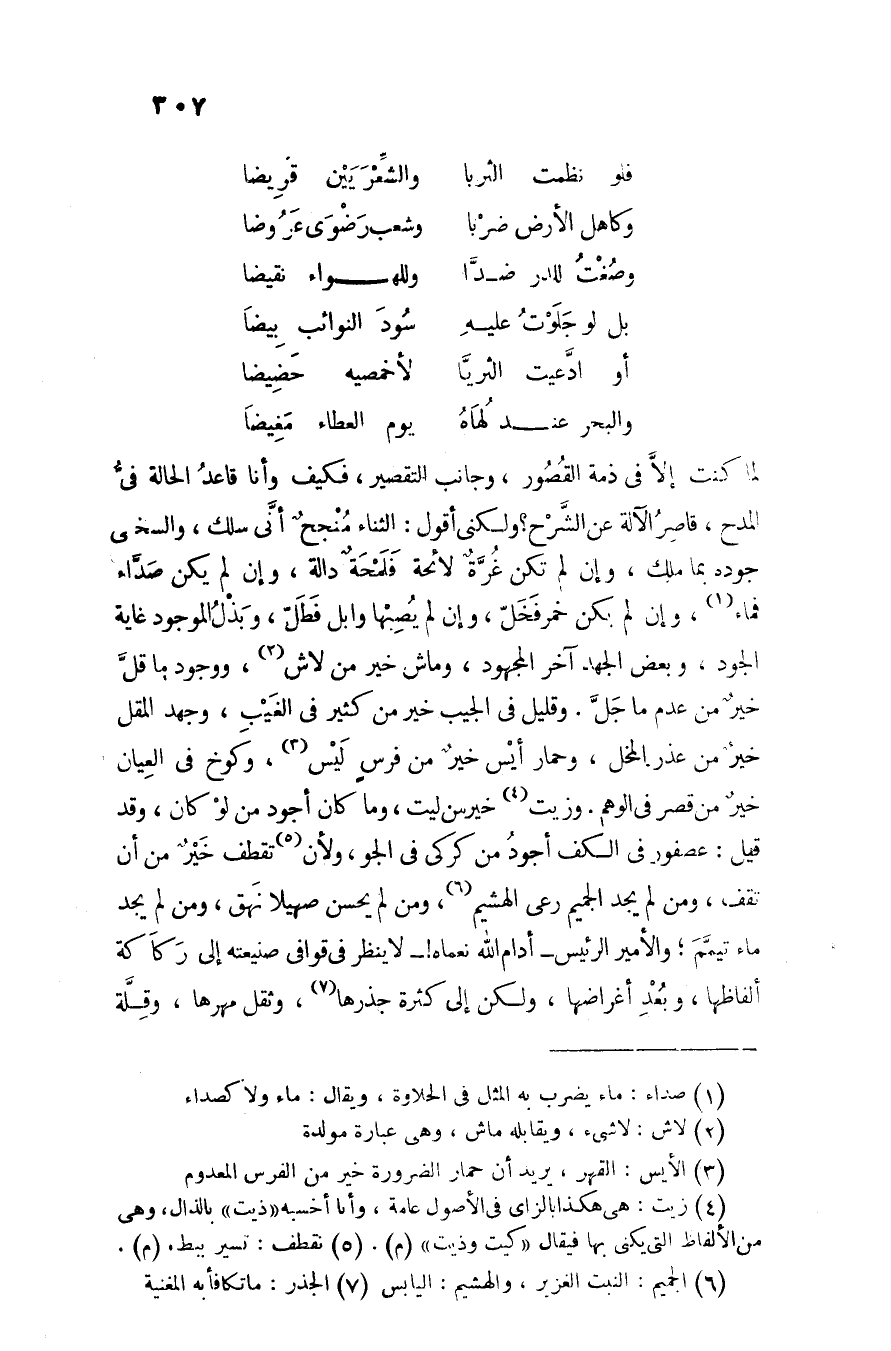 ٣٠٧
فلو نظمت الثريا والشِّعْرَيَيْن قَرِيضا
وكاهل الأرض ضرْبا وشعب رَضْوَى عَرُوضا
وصُغْتُ للدر ضدًّا وللهواء نقيضا
بل لو جَلَوْتُ عليهِ سُودَ النوائبِ بِيضَا
أو ادَّعيت الثريَّا لأخمصيه حَضِيضا
والبحر عند لُهَاهُ يوم العطاء مَغِيضَا
لما كنت إلاَّ فى ذمة القُصُور ، وجانب التقصير ، فكيف وأنا قاعدُ الحالة فى
المدح ، قاصِرُ الآلة عن الشَّرْح؟ ولكنى أقول : الثناء مُنْجحٌ أنَّى سلك ، والسخى
جوده بما ملك ، وإن لم تكن غُرَّةٌ لائحة فَلَمْحَةٌ دالة ، وإن لم يكن صَدَّاء
فماء(١) ، وإن لم يكن خمر فَخَلّ ، وإن لم يُصِبْها وابل فَطَلّ ، وبَذْلُ الموجود غاية
الجود ، وبعض الجهد آخر المجهود ، وماش خير من لاش(٢) ، ووجود ما قلَّ
خيرٌ من عدم ما جَلَّ . وقليل فى الجيب خير من كثير فى الغَيْبِ ، وجهد المقل
خيرٌ من عذر المخل ، وحمار أَيْس خيرٌ من فرسٍ لَيْس(٣) ، وكوخ فى العِيان
خيرٌ من قصر فى الوهم . وزيت(٤) خير من ليت ، وما كان أجود من لوْ كان ، وقد
قيل : عصفور فى الكف أجودُ من كركى فى الجو ، ولأن(٥) تقطف خَيْرٌ من أن
تقف ، ومن لم يجد الجميم رعى الهشيم(٦) ، ومن لم يحسن صهيلا نَهَق ، ومن لم يجد
ماء تيمَّمَ ؛ والأمير الرئيس ـ أدام الله نعماه! ـ لا ينظر فى قوافى صنيعته إلى رَكَاكة
ألفاظها ، وبُعْدِ أغراضها ، ولكن إلى كثرة جذرها(٧) ، وثقل مهرها ، وقِلَّة
(١) صداء : ماء يضرب به المثل فى الحلاوة ، ويقال : ماء ولا كصداء
(٢) لاش : لاشىء ، ويقابله ماش ، وهى عبارة مولدة
(٣) الأيس : القهر ، يريد أن حمار الضرورة خير من الفرس المعدوم
(٤) زيت : هى هكذا بالزاى فى الأصول عامة ، وأنا أحسبه «ذيت» بالذال ، وهى
من الألفاظ التى يكنى بها فيقال «كيت وذيت» (م) . (٥) تقطف : تسير ببطء (م) .
(٦) الجميم : النبت الغزير ، والهشيم : اليابس (٧) الجذر : ما تكافأ به المغنية